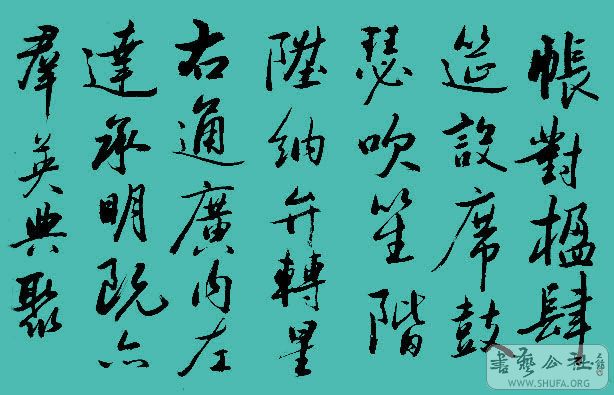 帳對楹肆
筵設席鼓
瑟吹笙階
陞納弁轉星
右通廣内左
達承明既亦
羣英典聚
書藝公社
WWW.SHUFA.ORG